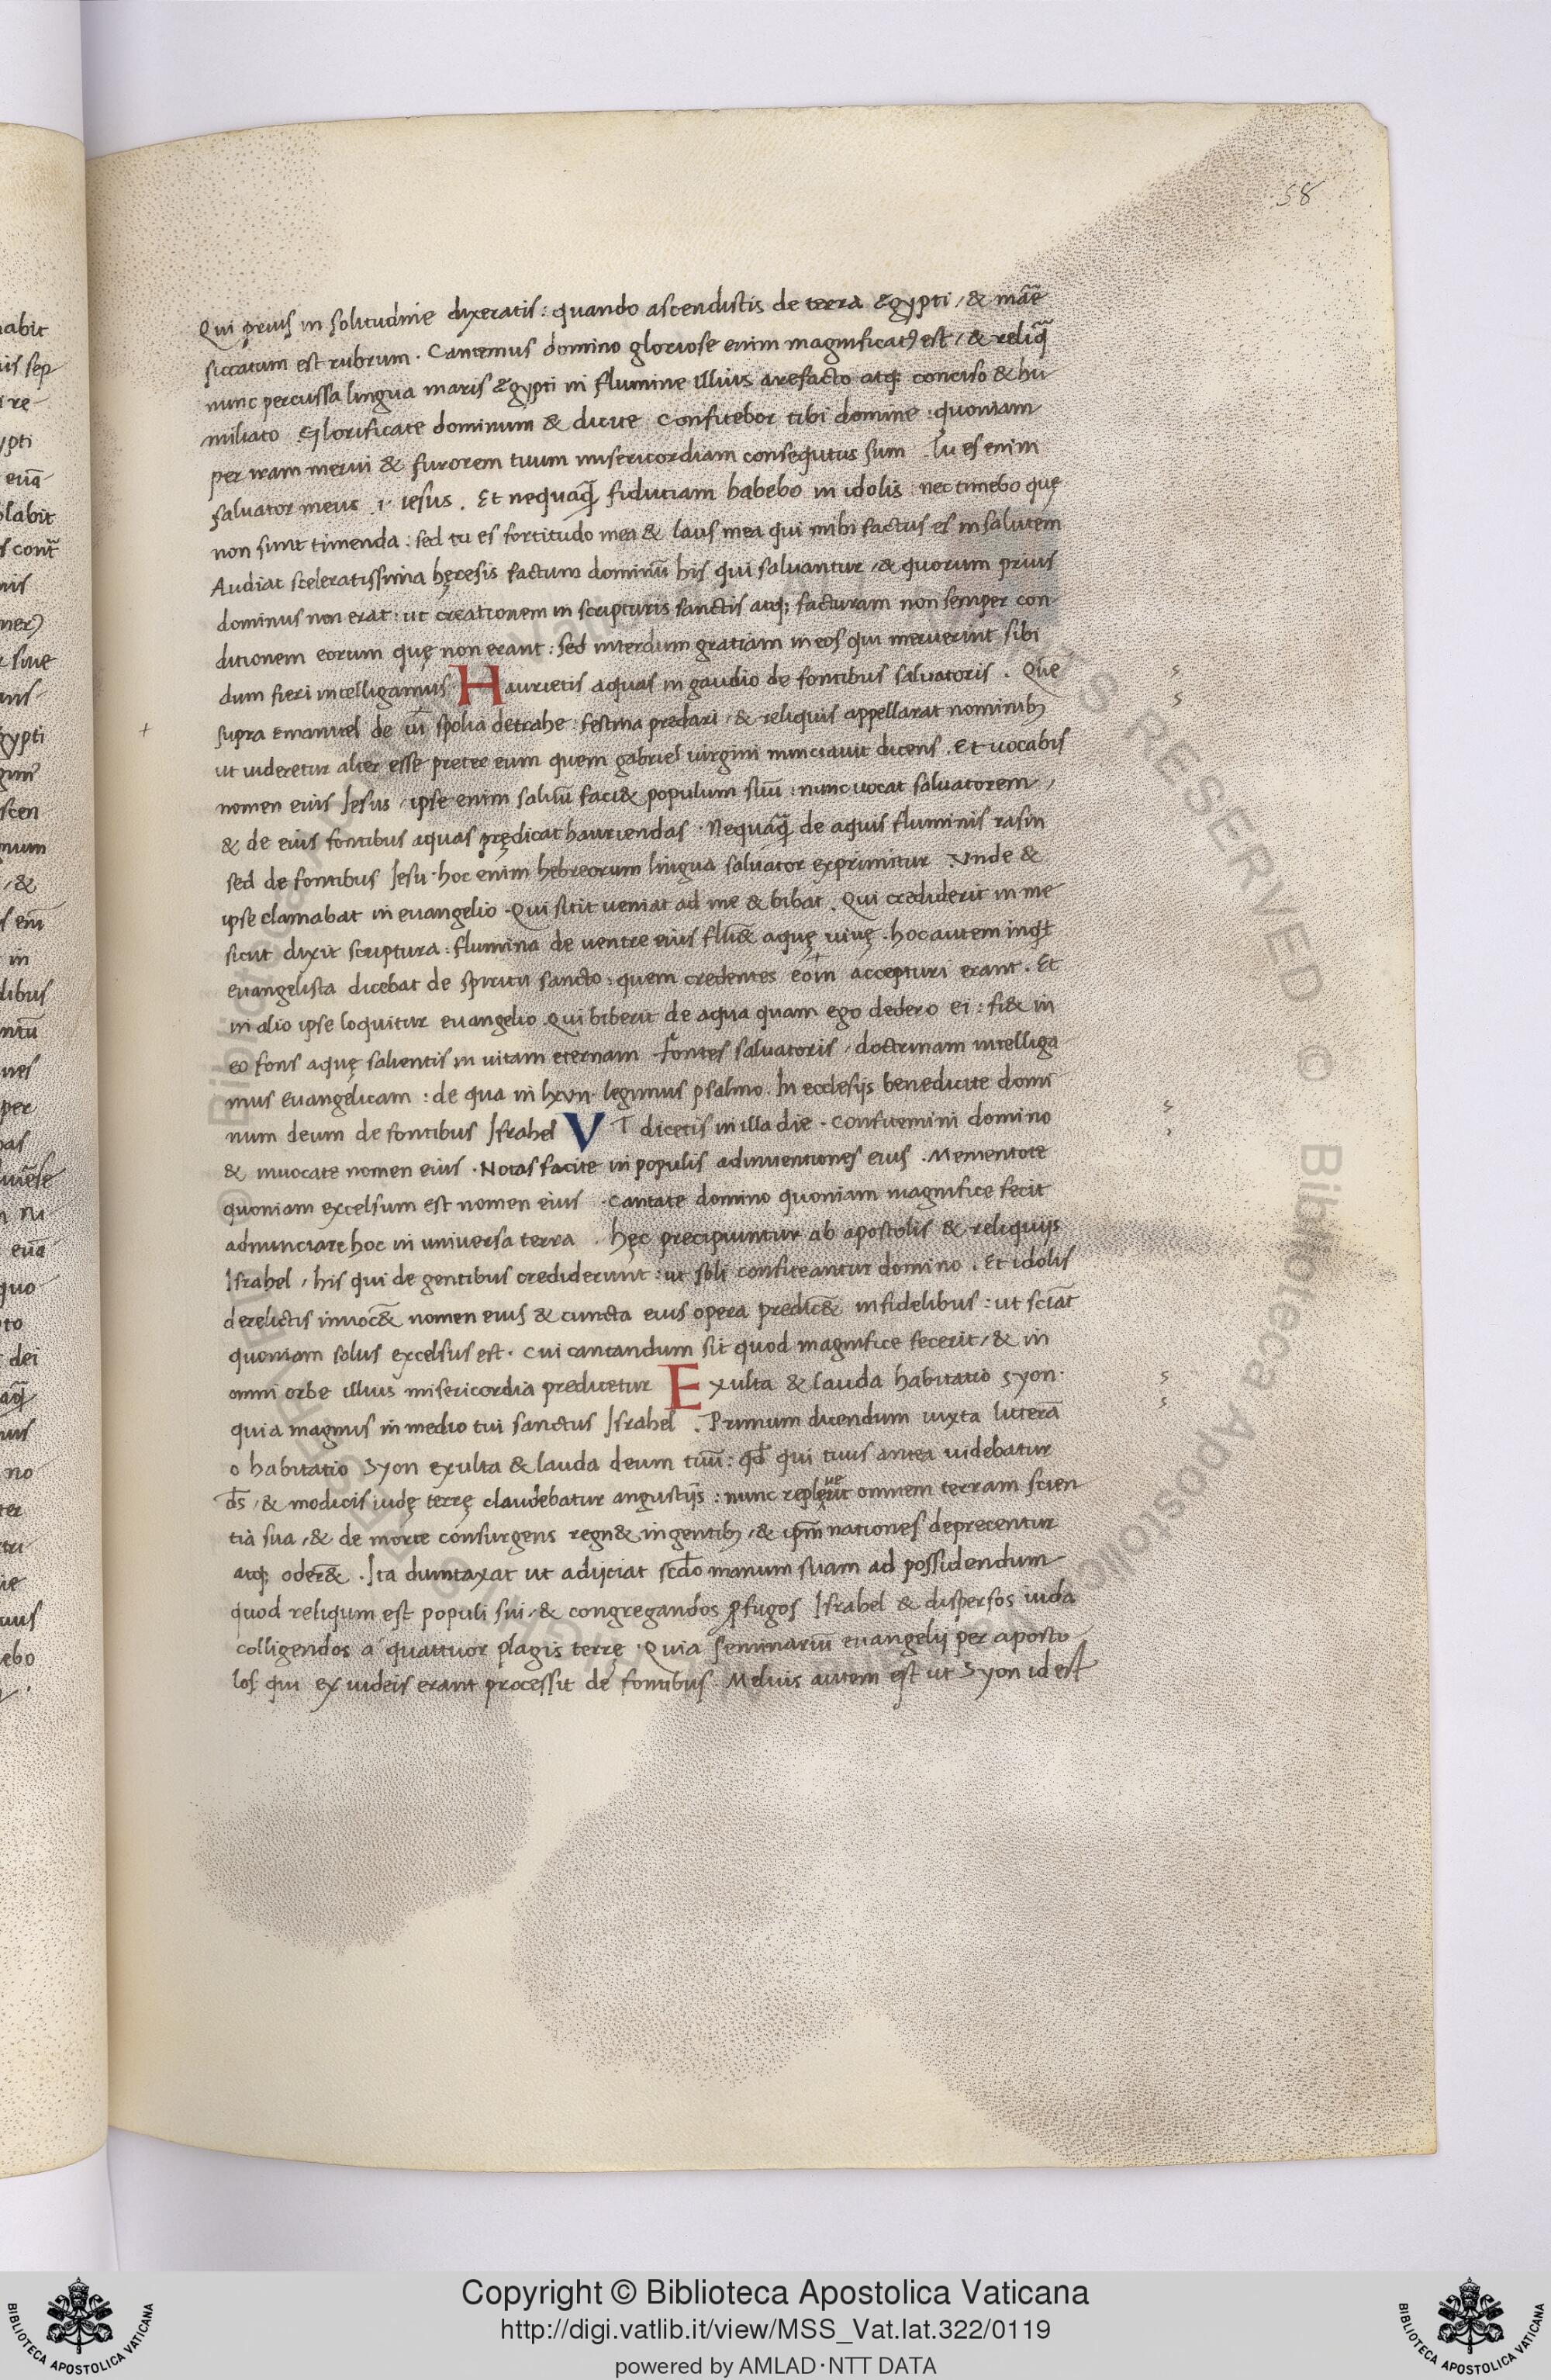 58
Qui prius in solitudine dixeratis : quando ascendistis de terra Egypti / & mare
siccatum est rubrum . Cantemus domino gloriose enim magnificatꝰ est / & reliq̃
nunc percussa lingua maris Egypti in flumine illius arefacto atq; conciso & hu
miliato . Glorificate dominum & dicite . Confitebor tibi domine : quoniam
per iram merui & furorem tuum misericordiam consequtus sum . Tu es enim
salvator meus .i. iesus . Et nequaq̃ fiduciam habebo in idolis : nec timebo quę
non sunt timenda : sed tu es fortitudo mea & laus mea qui mihi factus es in salutem
Audiat sceleratissima hęresis factum dominũ his qui salvantur / & quorum prius
dominus non erat : ut creationem in scripturis sanctis atq; facturam non semper con
ditionem eorum quę non erant : sed interdum gratiam in eos qui meruerint sibi
dum fieri intelligamus . Haurietis aquas in gaudio de fontibus salvatoris . Quẽ
supra Emanuel de ũi spolia detrahe : festina predari / & reliquis appellarat nominibꝫ
ut videretur alter esse preter eum quem gabriel virgini nunciavit dicens . Et vocabis
nomen eius Iesus / ipse enim salvũ faci& populum suũ : nunc vocat salvatorem /
& de eius fontibus aquas prędicat hauriendas . Nequaq̃ de aquis fluminis rasin
sed de fontibus Iesu . hoc enim hebreorum lingua salvator exprimitur . Unde &
ipse clamabat in evangelio . Qui sitit veniat ad me & bibat . Qui crediderit in me
sicut dixit scriptura : flumina de ventre eius flũ& aquę vivę . hoc autem inqt
evangelista dicebat de spiritu sancto : quem credentes eo accepturi erant . Et
in alio ipse loquitur evangelio . Qui biberit de aqua quam ego dedero ei : fi& in
eo fons aquę salientis in vitam eternam . fontes salvatoris / doctrinam intelliga
mus evangelicam : de qua in lxvii legimus psalmo . In ecclesijs benedicite domi
num deum de fontibus Israhel VT dicetis in illa die . Confitemini domino
& invocate nomen eius . Notas facite in populis adinventiones eius . Mementote
quoniam excelsum est nomen eius . Cantate domino quoniam magnifice fecit
adnunciate hoc in universa terra . hęc precipiuntur ab apostolis & reliquijs
Israhel / his qui de gentibus crediderunt : ut soli confiteantur domino . Et idolis
derelictis invoc̃& nomen eius & cuncta eius opera predic̃& infidelibus : ut sciãt
quoniam solus excelsus est . cui cantandum sit quod magnifice fecerit / & in
omni orbe illius misericordia predicetur Exulta & lauda habitatio syon .
quia magnus in medio tui sanctus Israhel . Primum dicendum iuxta litterã
o habitatio Syon exulta & lauda deum tuũ : qđ qui tuus antea videbatur
ds̃ / & modicis iudę terrę claudebatur angustijs : nunc repleverit omnem terram scien
tia sua / & de morte consurgens regn& in gentibꝫ / & ipm̃ nationes deprecentur
atq; oder̃& . Ita dumtaxat ut adijciat scđo manum suam ad possidendum
quod reliqum est populi sui / & congregandos ꝓfugos Israhel & dispersos iuda
colligendos a quattuor plagis terrę . Quia seminariũ evangelij per aposto
los qui ex iudeis erant processit de fontibus . Melius autem est ut Syon id est
Copyright © Biblioteca Apostolica Vaticana
http://digi.vatlib.it/view/MSS_Vat.lat.322/0119
powered by AMLAD·NTT DATA